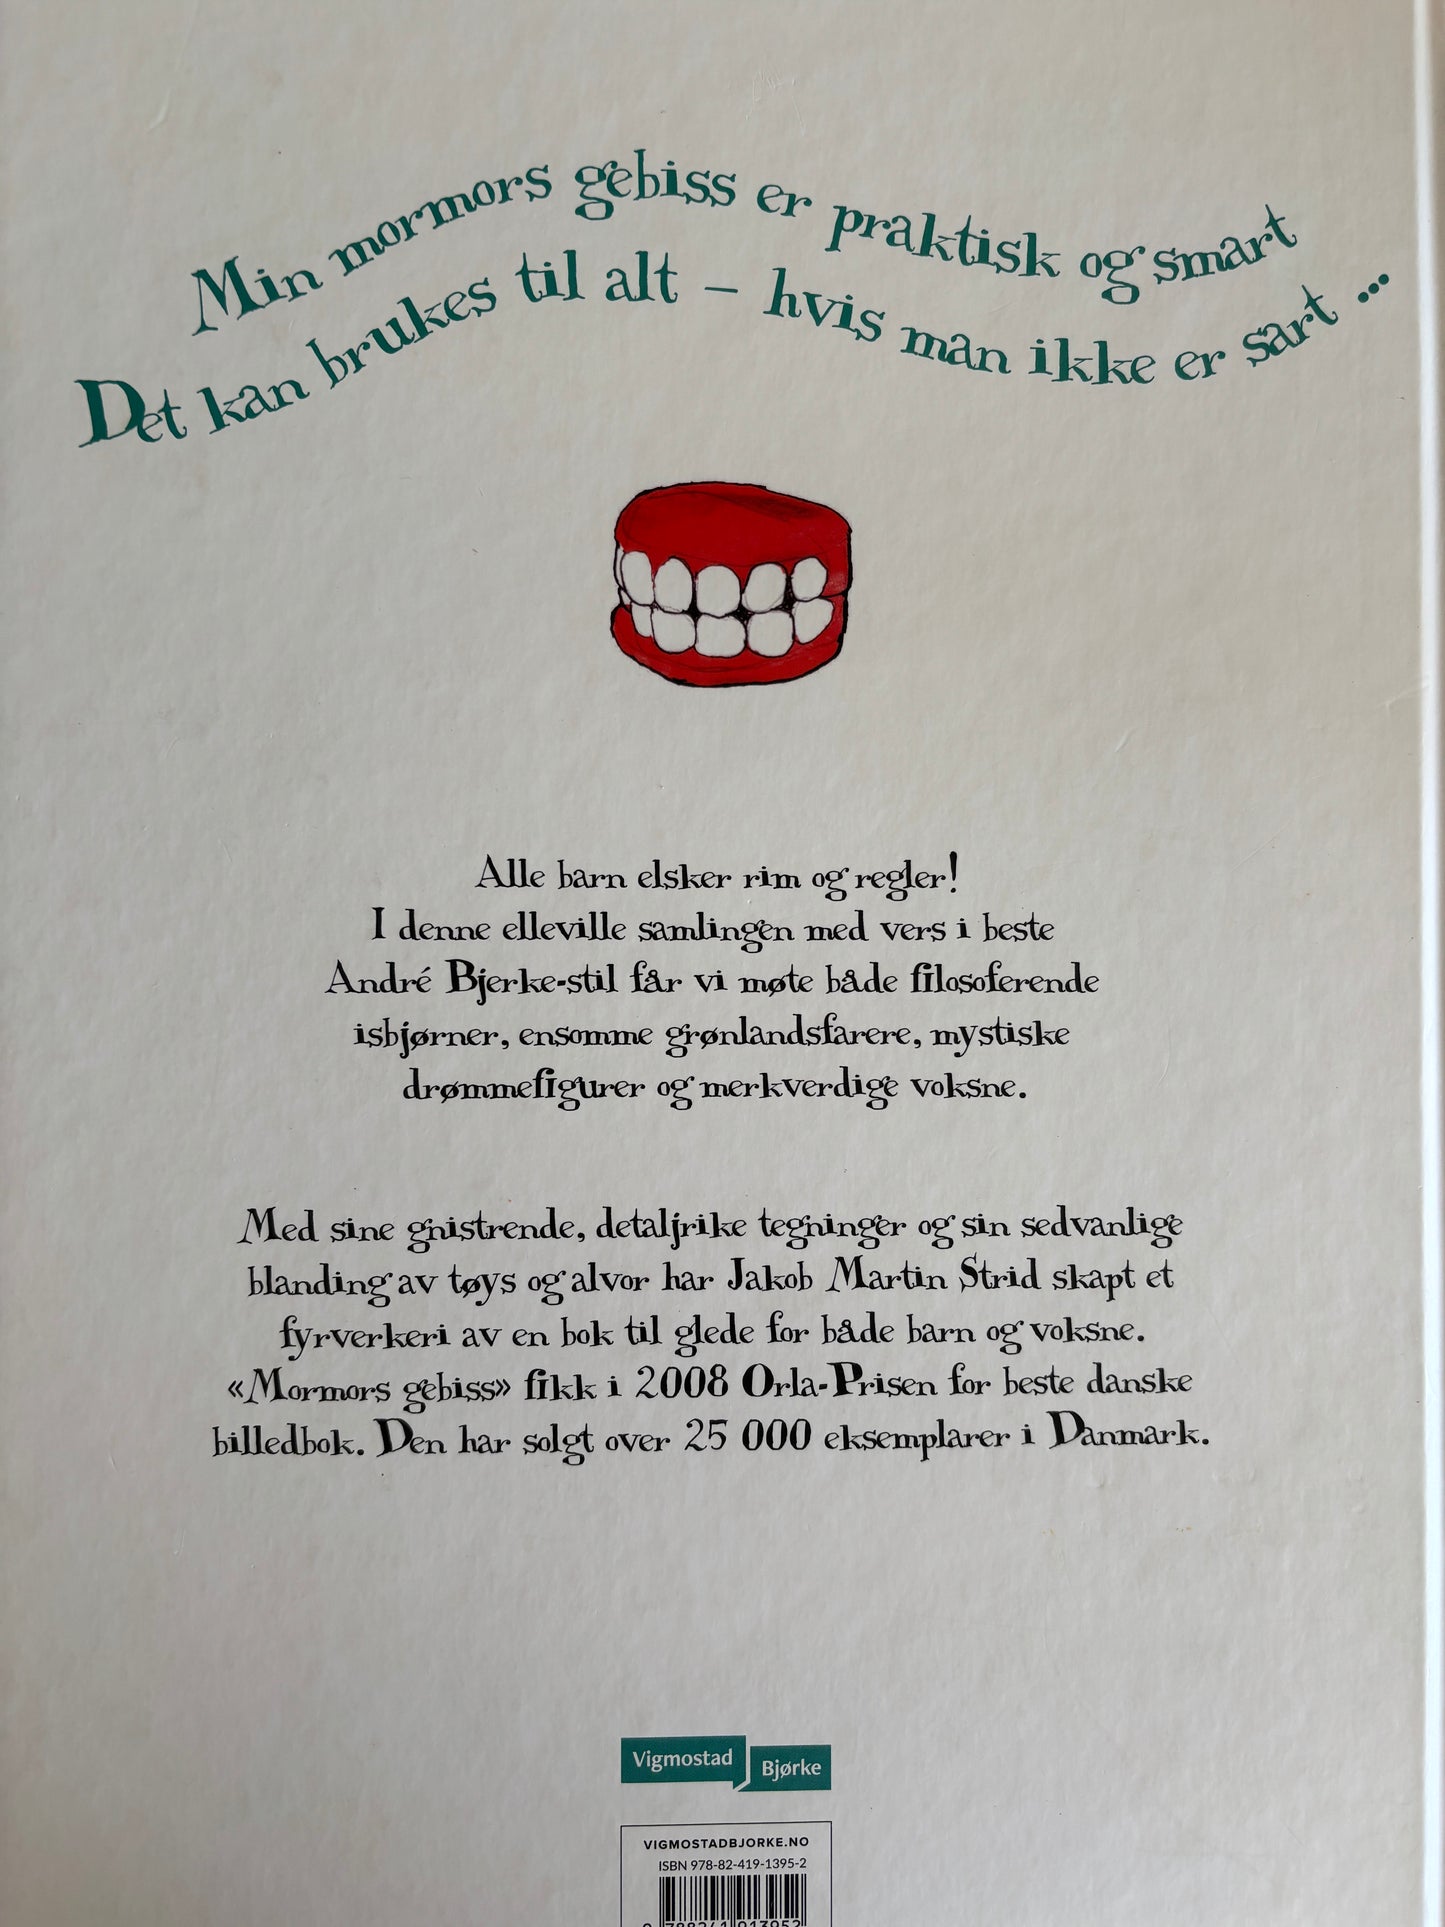 Min mormors gebiss er praktisk og smart
Det kan brukes til alt – hvis man ikke er sart ...
Alle barn elsker rim og regler!
I denne elleville samlingen med vers i beste
André Bjerke-stil får vi møte både filosoferende
isbjørner, ensomme grønlandsfarere, mystiske
drømmefigurer og merkverdige voksne.
Med sine gnistrende, detaljrike tegninger og sin sedvanlige
blanding av tøys og alvor har Jakob Martin Strid skapt et
fyrverkeri av en bok til glede for både barn og voksne.
«Mormors gebiss» fikk i 2008 Orla-Prisen for beste danske
billedbok. Den har solgt over 25 000 eksemplarer i Danmark.
Vigmostad
Bjørke
VIGMOSTADBJORKE.NO
ISBN 978-82-419-1395-2
9 788241 913952